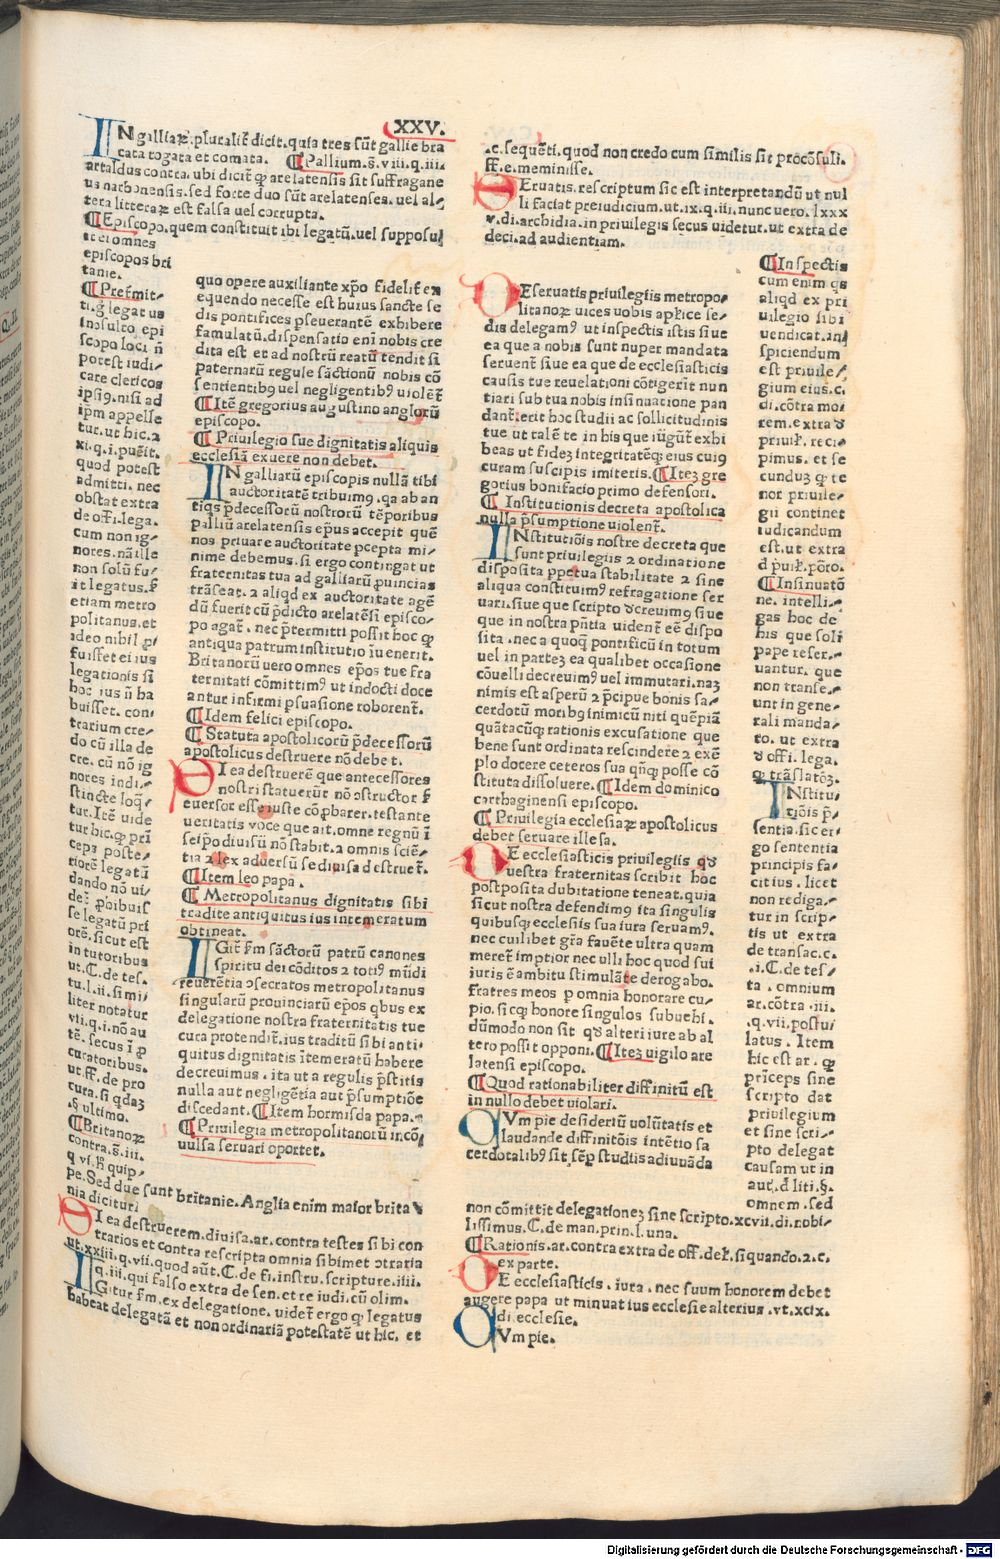 XXV.
IN galliaꝝ. pluralit᷑ dicit. quia tres sūt gallie bra
cata togata et comata. ¶ Pallium. s̄. viii. q. iii.
artaldus contra. ubi dicit᷑ ꝙ arelatensis sit suffragane
us narbonensis. sed forte duo sūt arelatenses. uel al⸗
tera litteraꝝ est falsa uel corrupta.
¶ Episcopo. quem constituit ibi legatū. uel supposu⸗
it ei omnes
episcopos bri
tanie.
¶ Preͬmit⸗
tiͭ. legat us
in sulto epi
scopo loci n̄
potest iudi⸗
care clericos
ipsi9. nisi ad
ip̄m appelle
tur. ut hic. ⁊
xi. q. i. pueīt.
quod potest
admitti. nec
obstat extra
de offi. lega.
cum non ig⸗
nores. nā ille
non solū fu⸗
it legatus. s̵
etiam metro
politanus. et
ideo nibil ꝓ
fuisset ei ius
legationis si
hoc ius n̄ ha
buisset. con⸗
trarium cre⸗
do cū illa de
cre. cū nō ig
nores indi⸗
stincte loq̄⸗
tur. Itē uide
tur hic. ꝙ pri
ceps poste⸗
riorē legatū
dando nō ui⸗
det᷑ p̄oibuis
se legatū pri
orē. sicut est
in tutoribus
ut. C. de tes.
tu. l. ii. simi⸗
liter notatur
vii. q. i. nō au
tē. secus ī ꝓ
curatoribus.
ut. ff. de pro
cura. si qdaʒ
.§ ultimo.
¶ Britanoꝝ
contra. s̄. iii.
q vi. h̵ quip⸗
pe. Sed due sunt britanie. Anglia enim maior brita
nia dicitur.
DI ea destruerem. diuisa. ar. contra testes sibi con
trarios et contra rescripta omnia sibimet ↄtraria
ut. xxiii. q. vii. quod aūt. C. de fi. instru. scripture. iiii.
q. iii. qui falso extra de sen. et re iudi. cū olim.
IGitur s̵m. ex delegatione. uidet᷑ ergo ꝙ legatus
habeat delegatā et non ordinariā potestatē ut hic. et
quo opere auxiliante xp̄o fidelit᷑ ex
equendo necesse est huius sancte se
dis pontifices pseuerantē exhibere
famulatū. dispensatio eni nobis cre
dita est et ad nostrū reatū tendit si
paternarū regule sāctionū nobis cō
sentientib9 uel negligentib9 uiolēt᷑
¶ Itē gregorius augustino angloꝝ
episcopo.
¶ Priuilegio sue dignitatis aliquis
ecclesiā exuere non debet.
IN galliarū episcopis nullā tibi
auctoritatē tribuim9. qa ab an
tiqs p̄decessorū nostrorū tēporibus
palliū arelatensis ep̄us accepit quē
nos priuare auctoritate pcepta mi⸗
nime debemus. si ergo contingat ut
fraternitas tua ad galliaꝝ puincias
trāseat. ⁊ aliqd ex auctoritate agē
dū fuerit cū p̄dicto arelatēsi episco⸗
po agat᷑. nec p̄termitti possit hoc ꝙ
antiqua patrum institutio iuenerit.
Britanorū uero omnes ep̄os tue fra
ternitati cōmittim9 ut indocti doce
antur infirmi psuasione roborent᷑.
¶ Idem felici episcopo.
¶ Statuta apostolicorū p̄decessorū
apostolicus destruere nō debet.
DI ea destruerē que antecessores
nostri statuerūt nō ↄstructor s̵
euersor esse iuste cōpbarer. testante
ueritatis voce que ait. omne regnū ī
seip̄o diuisū nō stabit. ⁊ omnis sciē⸗
tia ⁊ lex aduersū se diuisa destruet᷑.
¶ Item leo papa.
¶ Metropolitanus dignitatis sibi
tradite antiquitus ius intemeratum
obtineat.
IGit᷑ s̵m sāctorū patrū canones
spiritu dei cōditos ⁊ toti9 mūdi
reuerētia ↄsecratos metropolitanus
singularū prouinciarū ep̄os qbus ex
delegatione nostra fraternitatis tue
cura protendit᷑. ius traditū sibi anti⸗
quitus dignitatis ītemeratū habere
decreuimus. ita ut a regulis p̄stitis
nulla aut negligētia aut p̄sumptiōe
discedant. ¶ Item hormisda papa.
¶ Priuilegia metropolitanorū incō⸗
uulsa seruari oportet.
.c. sequēti. quod non credo cum similis sit procōsuli.
ff. e. meminisse.
DEruatis. rescriptum sic est interpretandū ut nul
li faciat preiudicium. ut. ix. q. iii. nunc uero. lxxx
v. di. archidia. in priuilegis secus uidetur. ut extra de
deci. ad audientiam.
DEseruatis priuilegiis metropo⸗
litanoꝝ uices uobis ap̄lice se⸗
dis delegam9 ut inspectis istis siue
ea que a nobis sunt nuper mandata
seruent siue ea que de ecclesiasticis
causis tue reuelationi cōtigerit nun
tiari sub tua nobis insinuatione pan
dant᷑. erit hoc studii ac sollicitudinis
tue ut talē te in his que iūgūt᷑ exhi
beas ut fideʒ integritatēqꝫ eius cui9
curam suscipis imiteris. ¶ Iteʒ gre
gorius bonifacio primo defensori.
¶ Institutionis decreta apostolica
nulla p̄sumptione uiolent᷑.
INstitutiōis nostre decreta que
sunt priuilegiis ⁊ ordinatione
disposita ppetua stabilitate ⁊ sine
aliqua constituim9 refragatione ser
uari. siue que scripto d̵creuim9 siue
que in nostra pn̄tia uident᷑ eē dispo
sita. nec a quoq̄ pontificū in totum
uel in parteʒ ea qualibet occasione
cōuelli decreuim9 uel immutari. naʒ
nimis est asperū ⁊ p̄cipue bonis sa⸗
cerdotū morib9 inimicū niti quēpiā
quātacūqꝫ rationis excusatione que
bene sunt ordinata rescindere ⁊ exē
plo docere ceteros sua qn̄qꝫ posse cō
stituta dissoluere. ¶ Idem dominico
carthaginensi episcopo.
¶ Priuilegia ecclesiaꝝ apostolicus
debet seruare illesa.
DE ecclesiasticis priuilegiis qd̵
uestra fraternitas scribit hoc
postposita dubitatione teneat. quia
sicut nostra defendim9 ita singulis
quibusqꝫ ecclesiis sua iura seruam9.
nec cuilibet gr̄a fauēte ultra quam
meret᷑ imptior nec ulli hoc quod sui
iuris ē ambitu stimulāte derogabo.
fratres meos ꝑ omnia honorare cu⸗
pio. sicqꝫ honore singulos subuehi.
dūmodo non sit qd̵ alteri iure ab al
tero possit opponi. ¶ Iteʒ uigilo are
latensi episcopo.
¶ Quod rationabiliter diffinitū est
in nullo debet uiolari.
QVm pie desideriū uolūtatis et
laudande diffinitōis intētio sa
cerdotalib9 sit sēp studiis adiuuāda
¶ Inspectis
cum enim qs
aliqd ex pri
uilegio sibi
uendicat. in⸗
spiciendum
est priuile⸗
gium eius. c.
di. cōtra mo⸗
rem. extra d̵
priuil̵. reci⸗
pimus. et se
cunduʒ ꝙ te
nor priuile⸗
gii continet
iudicandum
est. ut extra
d̵ puil̵. pōro.
¶ Insinuatō
ne. intelli⸗
gas hoc de
his que soli
pape reser⸗
uantur. que
non transe⸗
unt in gene⸗
rali manda⸗
to. ut extra
d̵ offi. lega.
ꝙ trāslatōʒ.
INstitu⸗
tiōis p̄⸗
sentia. sic er⸗
go sententia
principis fa⸗
cit ius. licet
non rediga⸗
tur in scrip⸗
tis ut extra
de transac. c.
.i. C. de tes⸗
ta. omnium
ar. cōtra. iii.
.q. vii. postu⸗
latus. Item
hic est ar. ꝙ
prīceps sine
scripto dat
priuilegium
et sine scri⸗
pto delegat
causam ut in
aut. d̵ liti. §.
omnem. sed
non cōmittit delegationeʒ sine scripto. xcvii. di. nobi⸗
lissimus. C. de man. prin. l. una.
¶ Rationis. ar. contra extra de off. del̵. si quando. ⁊ c.
ex parte.
DE ecclesiasticis. iura. nec suum honorem debet
augere papa ut minuat ius ecclesie alterius. vt. xcix.
di. ecclesie.
QVm pie.
Digitalisierung gefördert durch die Deutsche Forschungsgemeinschaft - DFG